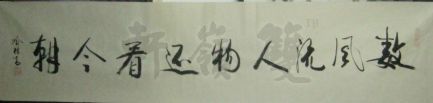 数风流人物还看今朝